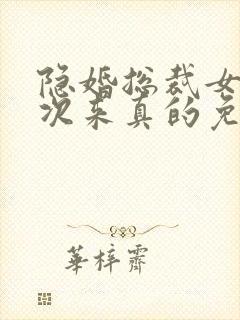 隐婚总裁女
次来真的免
華梓霽